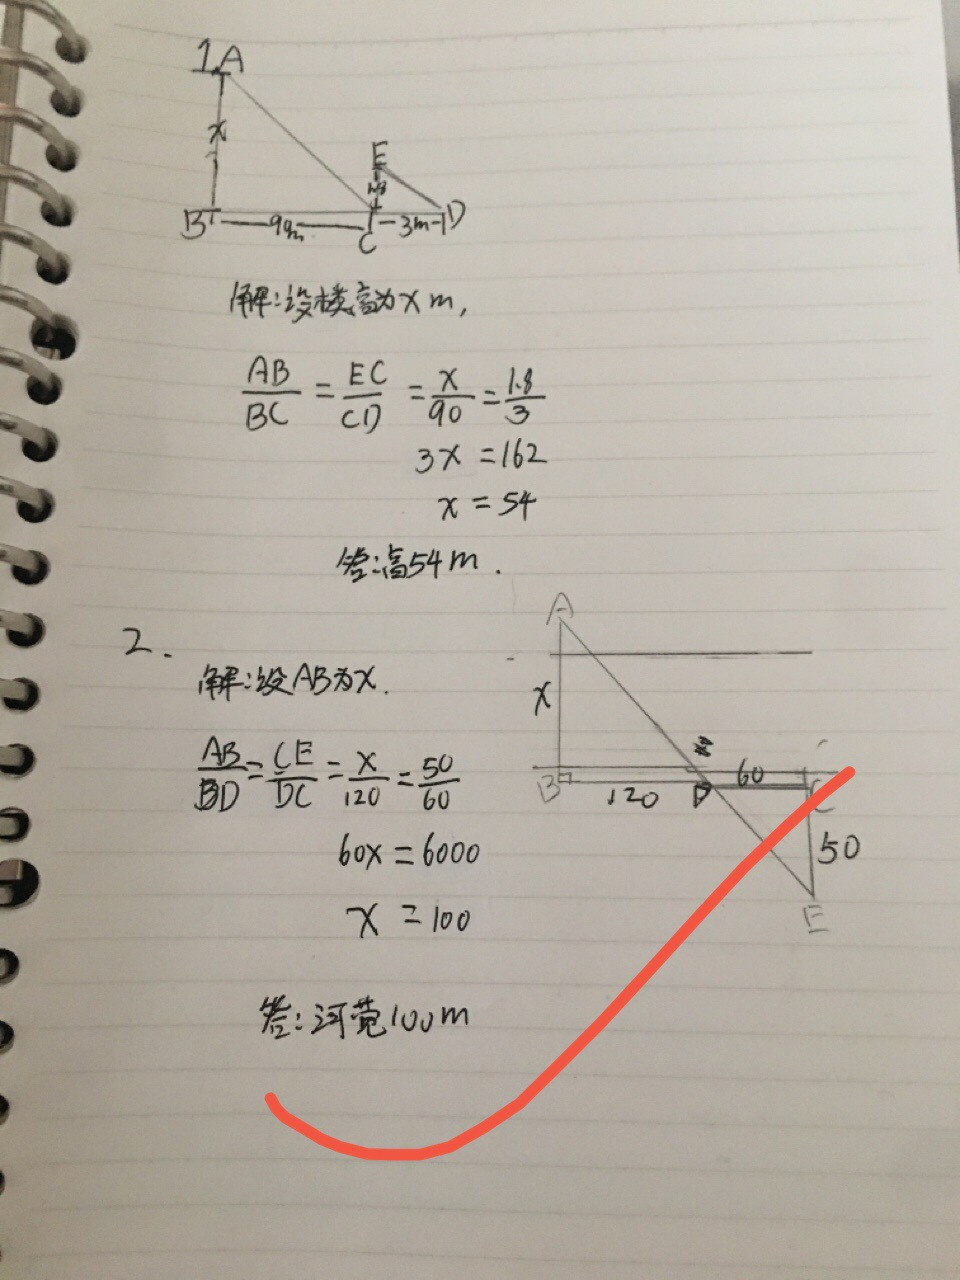 1. A
x
E
1.8
B
9m
C
3m
D
解:设楼高为xm,
AB/BC = EC/CD = x/90 = 1.8/3
3x = 162
x = 54
答:高54m.
2.
A
解:设AB为x.
x
AB/BD = CE/DC = x/120 = 50/60
B
120
D
60
C
50
E
60x = 6000
x = 100
答:河宽100m